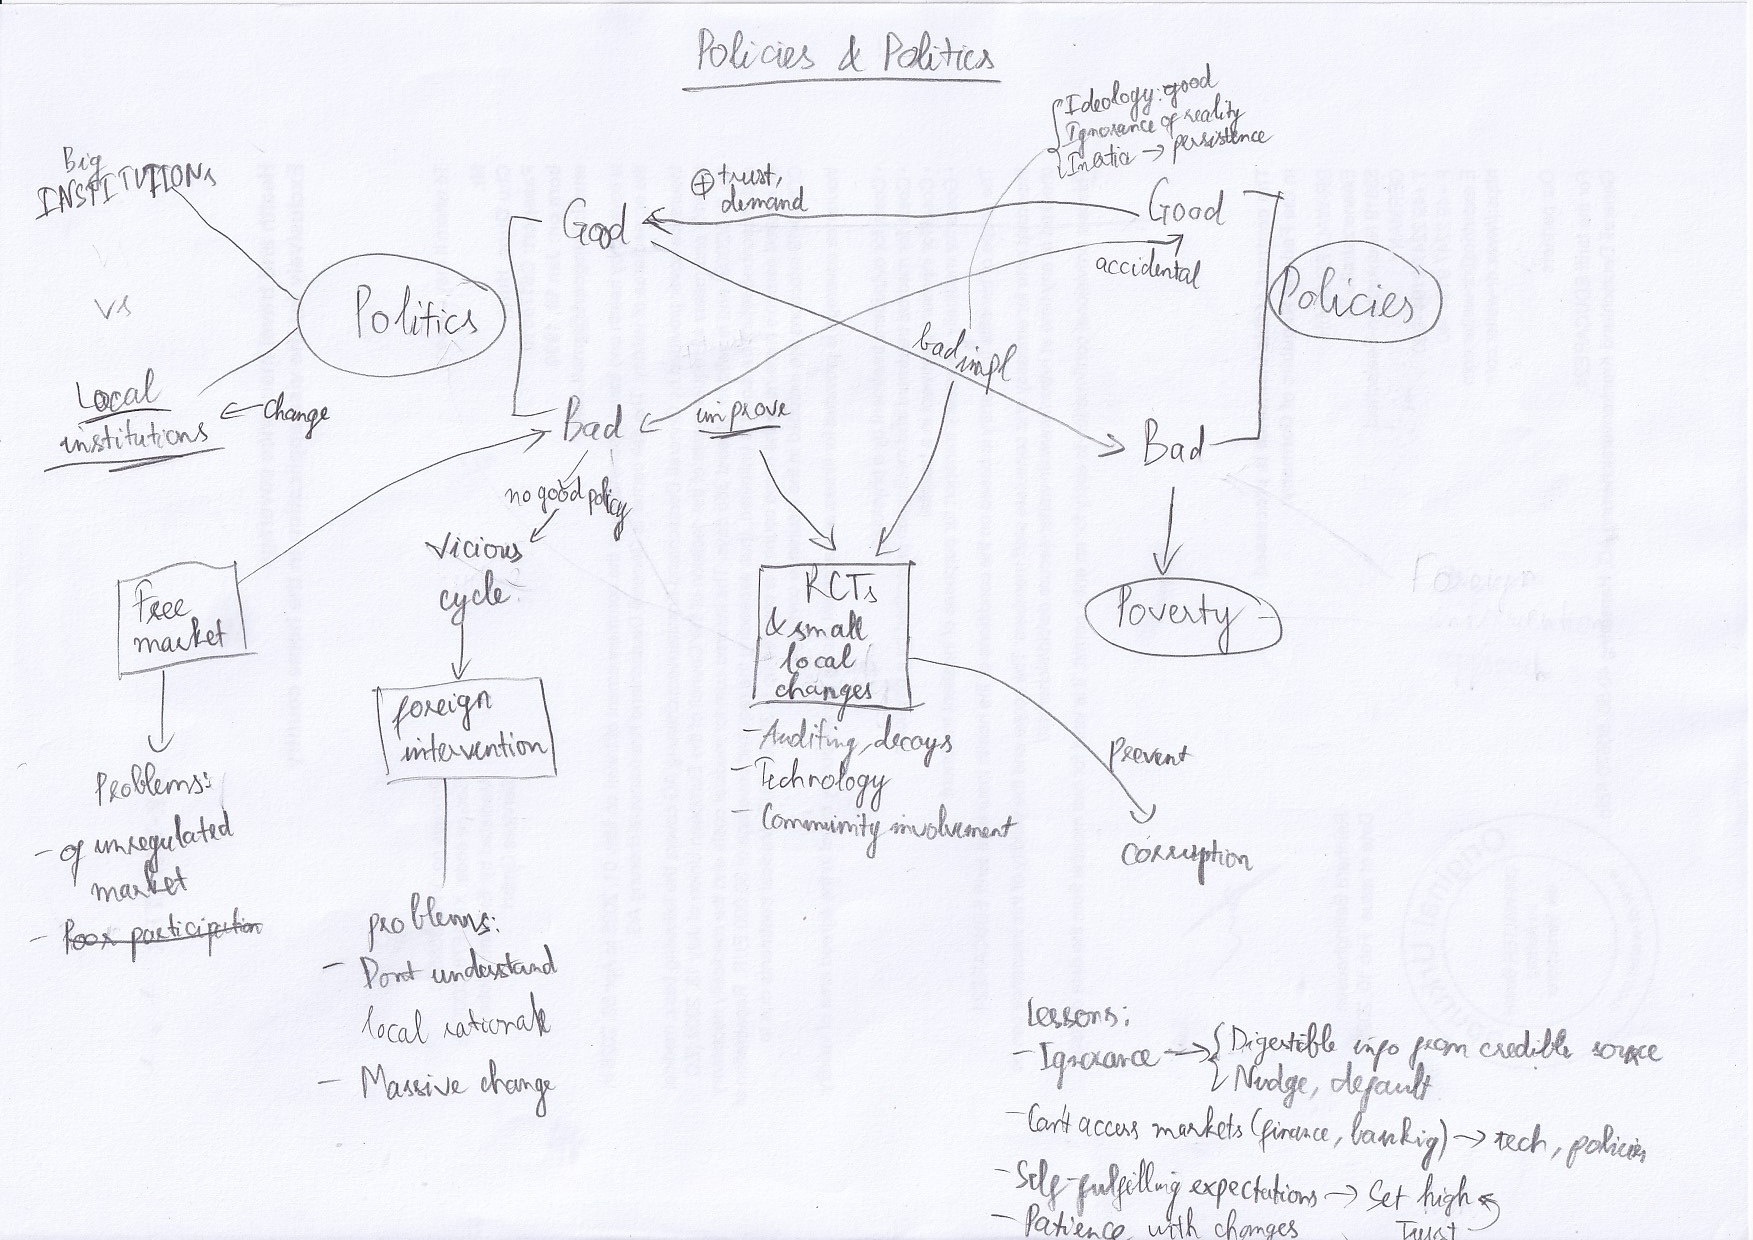 Policies & Politics
Big
INSTITUTIONs
vs
Local
institutions
← change
Politics
Good
Bad
⊕ trust,
demand
Ideology: good
Ignorance of reality
Inertia → persistence
Good
accidental
Policies
bad impl
improve
Bad
Poverty
no good policy
Vicious
cycle
Free
market
Problems:
- of unregulated
market
- Poor participation
foreign
intervention
problems:
- Dont understand
local rationale
- Massive change
RCTs
& small
local
changes
- Auditing, decoys
- Technology
- Community involvement
prevent
corruption
Foreign
Lessons:
- Ignorance → Digestible info from credible source
Nudge, default
- Can't access markets (finance, bankig) → tech, policies
- Self-fulfilling expectations → Set high
- Patience, with changes
Trust